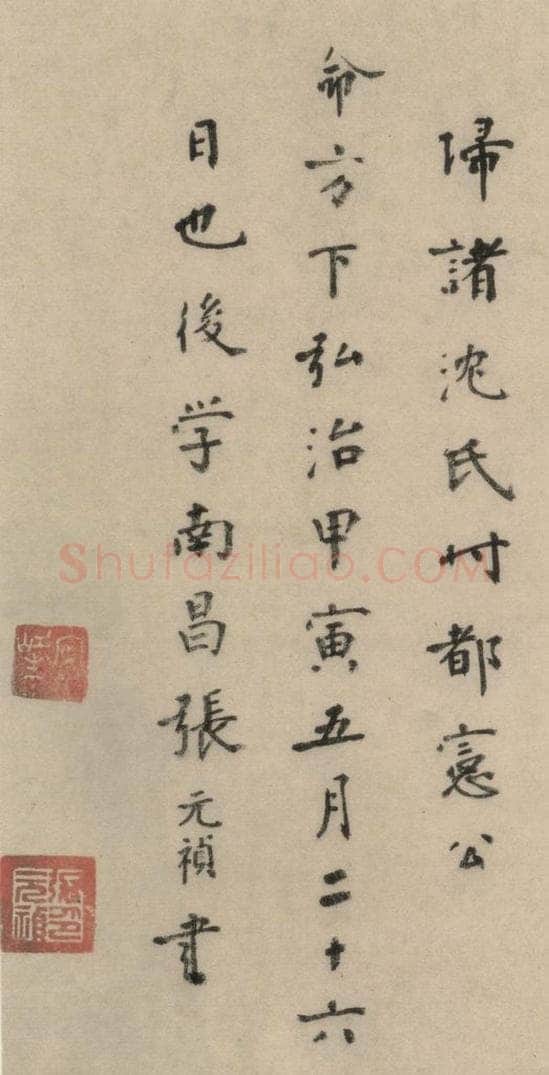 帰諸沈氏时都憲公
命方下弘治甲寅五月二十六
日也後学南昌張元禎書
Shufaziliao.COM